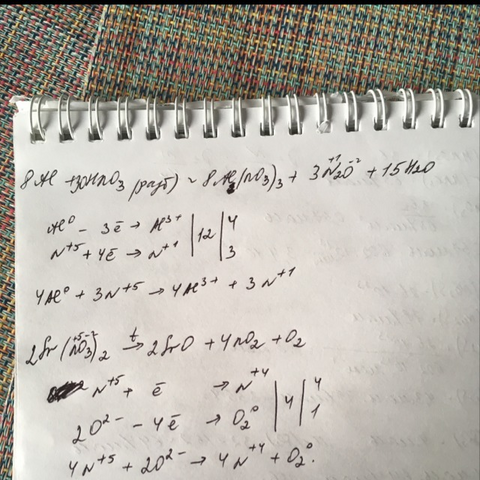 8Al + 30HNO3 (разб) = 8Al(NO3)3 + 3N2^{+1}O^{-2} + 15H2O
Al^0 - 3ē → Al^{3+} | 12 | 4
N^{+5} + 4ē → N^{+1} | | 3
4Al^0 + 3N^{+5} → 4Al^{3+} + 3N^{+1}
2Sr(N^{+5}O3^{-2})2 \xrightarrow{t} 2SrO + 4NO2 + O2
N^{+5} + ē → N^{+4} | 4 | 4
2O^{2-} - 4ē → O2^0 | | 1
4N^{+5} + 2O^{2-} → 4N^{+4} + O2^0.